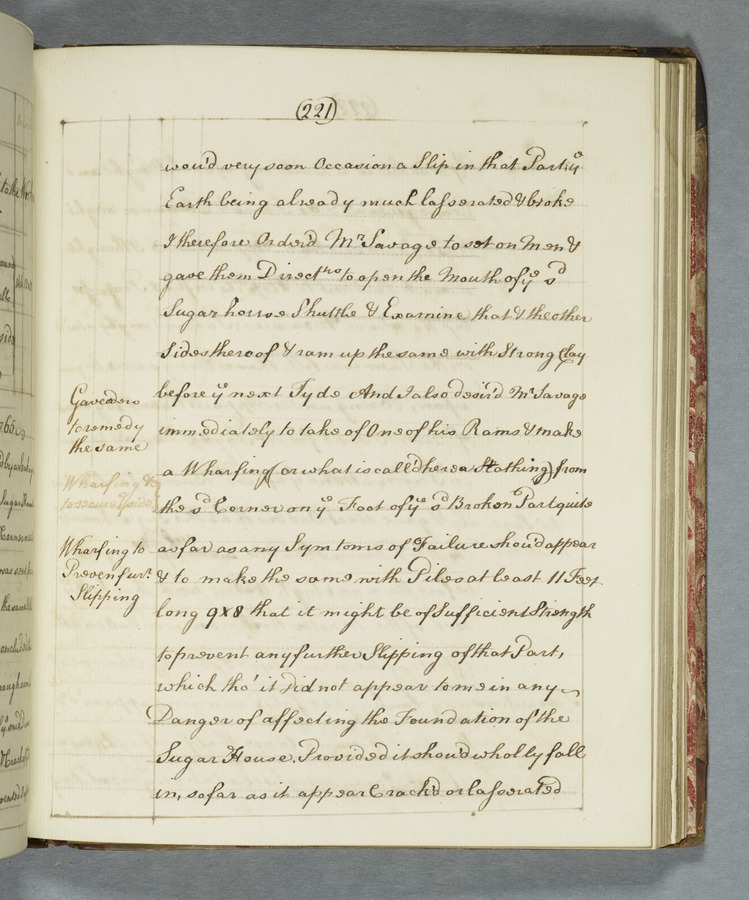 (221)
wou'd very soon Occasion a Slip in that Part yᵉ
Earth being already much lasserated & broke
I therefore Order'd Mʳ Savage to set on Men &
gave them Directⁿˢ to open the Mouth of yᵉ sᵈ
Sugar house Shuttle & Examine that & the other
Sides thereof & ram up the same with Strong Clay
before yᵉ next Tyde And I also desir'd Mʳ Savage
immediately to take of One of his Rams & make
a Wharfing (or what is call'd here a Stathing) from
the sᵈ Corner on yᵉ Foot of yᵉ sᵈ Broken Part quite
as far as any Symtoms of Failure shou'd appear
& to make the same with Piles at least 11 Feet
long 9x8 that it might be of Sufficient Strength
to prevent any further Slipping of that Part,
which tho' it did not appear to me in any
Danger of affecting the Foundation of the
Sugar House, Provided it shou'd wholly fall
in, so far as it appear Crack'd or lasserated
Gave orders
to remedy
the same
Wharfing &c
to secure
Wharfing to
Preven furʳ
Slipping